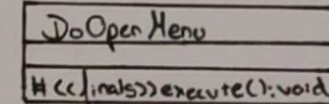 DoOpenMenu
#<<final>>execute():void